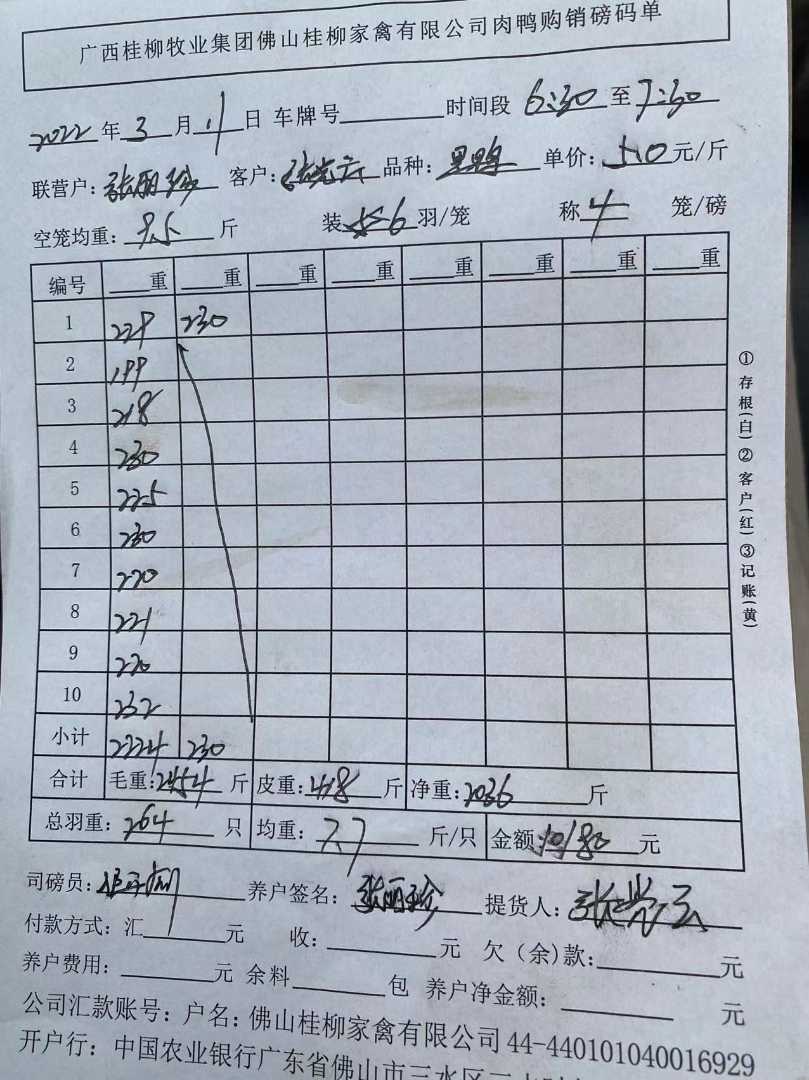 广西桂柳牧业集团佛山桂柳家禽有限公司肉鸭购销磅码单
2022年3月11日 车牌号 时间段 6:30 至 7:30
联营户：张丽珍 客户：张党云 品种：黑鸭 单价：5.10元/斤
空笼均重：9.5斤 装6羽/笼 称4笼/磅
编号 重 重 重 重 重 重 重 重
1 229 230
2 199
3 218
4 230
5 225
6 230
7 220
8 221
9 220
10 232
小计 2224 230
合计 毛重：2454斤 皮重：418斤 净重：2036斤
总羽重：264只 均重：7.7斤/只 金额：10180元
司磅员： 养户签名：张丽珍 提货人：张党云
付款方式：汇 元 收： 元 欠（余）款： 元
养户费用： 元 余料 包 养户净金额： 元
公司汇款账号：户名：佛山桂柳家禽有限公司 44-440101040016929
开户行：中国农业银行广东省佛山市三水区
①存根（白）②客户（红）③记账（黄）